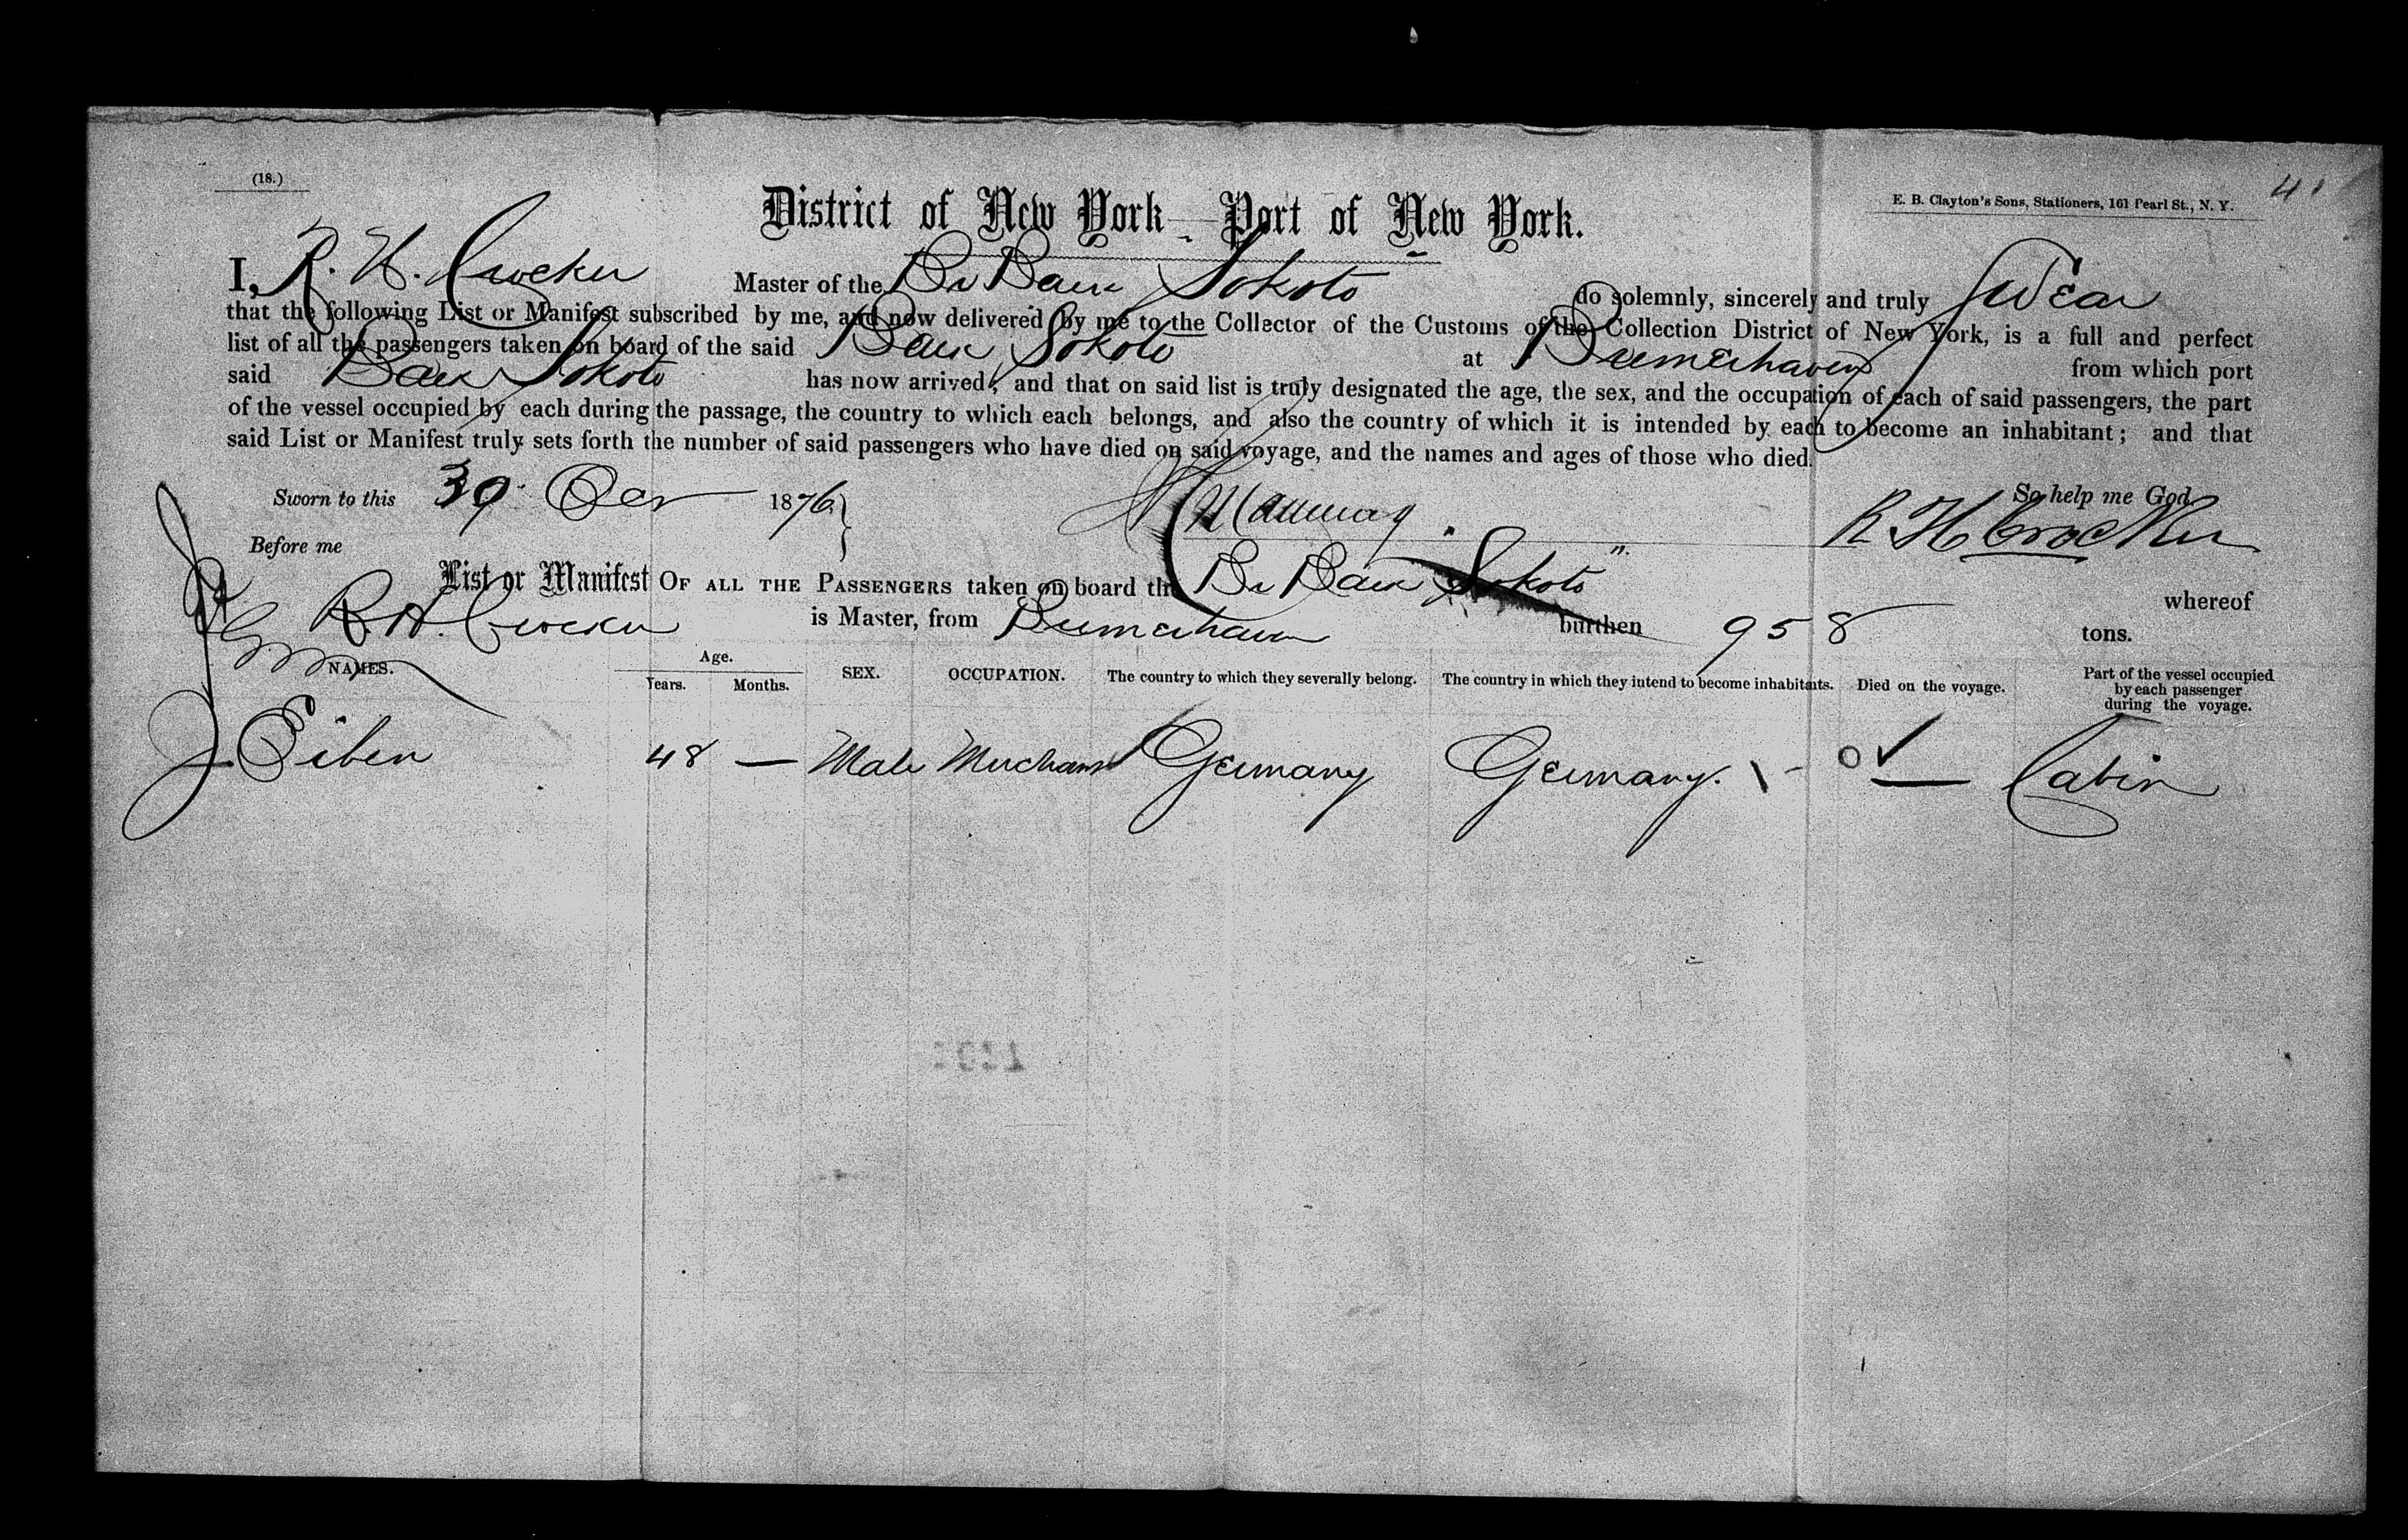 (18.)
41
E. B. Clayton's Sons, Stationers, 161 Pearl St., N. Y.
District of New York - Port of New York.
I, R. H. Crocker Master of the Br Bark Sokoto do solemnly, sincerely and truly swear
that the following List or Manifest subscribed by me, and now delivered by me to the Collector of the Customs of the Collection District of New York, is a full and perfect
list of all the passengers taken on board of the said Bark Sokoto at Bremerhaven from which port
said Bark Sokoto has now arrived; and that on said list is truly designated the age, the sex, and the occupation of each of said passengers, the part
of the vessel occupied by each during the passage, the country to which each belongs, and also the country of which it is intended by each to become an inhabitant; and that
said List or Manifest truly sets forth the number of said passengers who have died on said voyage, and the names and ages of those who died.
Sworn to this 1876 So help me God
Before me R H Crocker
List or Manifest OF ALL THE PASSENGERS taken on board the Br Bark Sokoto" whereof
R. H. Crocker is Master, from Bremerhaven burthen 958 tons.
NAMES. Age. Years. Months. SEX. OCCUPATION. The country to which they severally belong. The country in which they intend to become inhabitants. Died on the voyage. Part of the vessel occupied by each passenger during the voyage.
J Eiben 48 — Male Merchant Germany Germany. 0 — Cabin